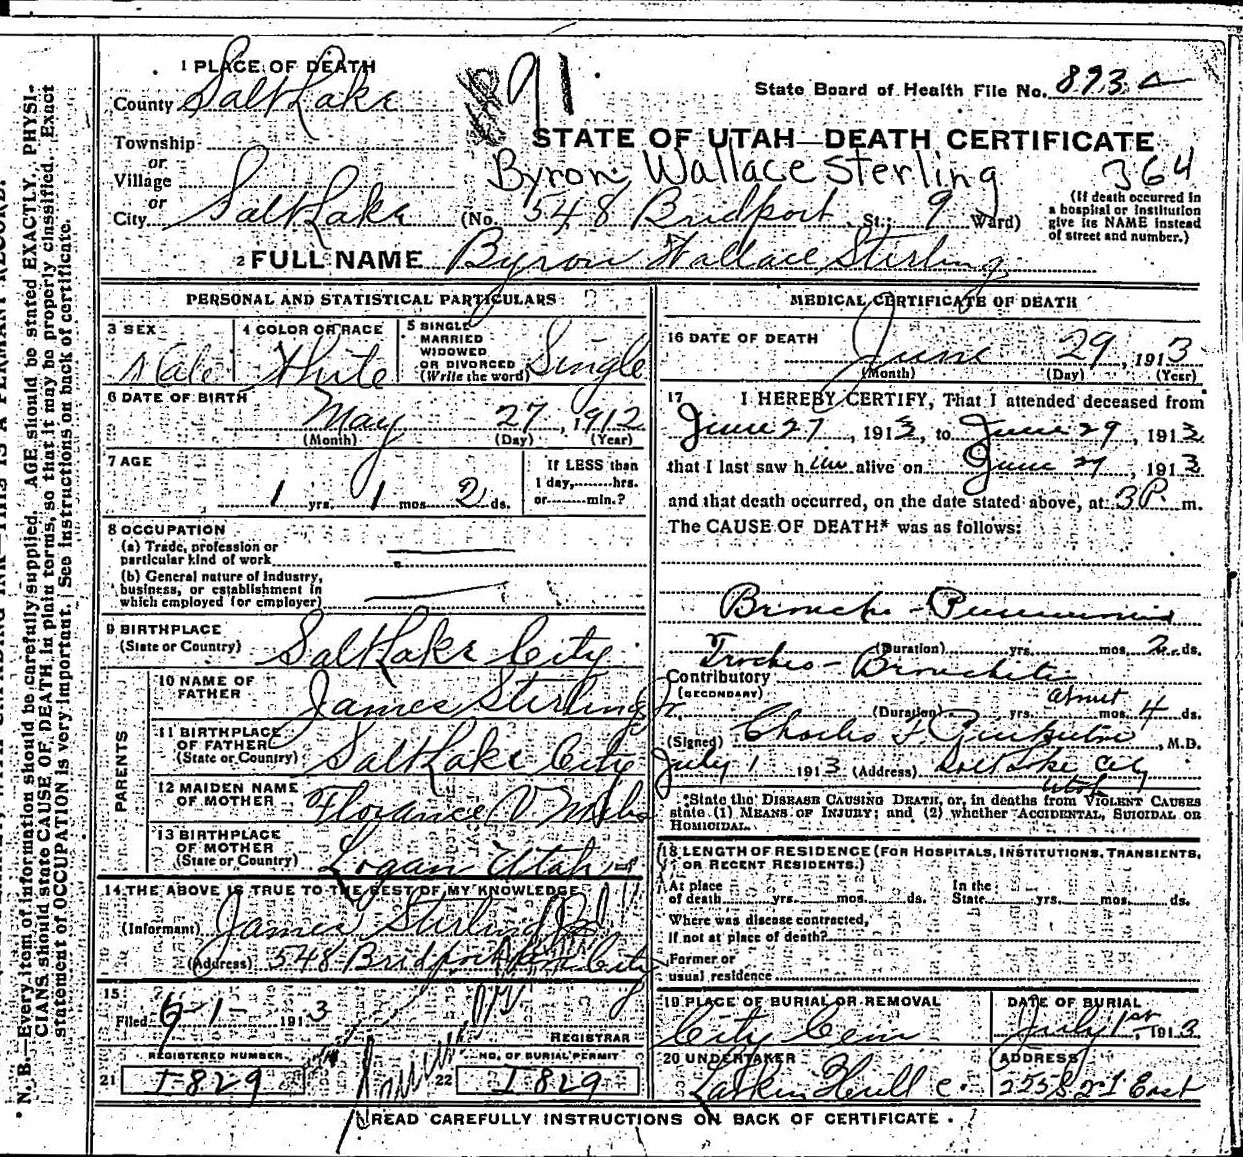 1 PLACE OF DEATH
County Salt Lake
Township
or
Village
or
City Salt Lake
91
State Board of Health File No. 893
STATE OF UTAH—DEATH CERTIFICATE
Byron Wallace Sterling
364
(No. 548 Bridport St.; 9 Ward)
(If death occurred in
a hospital or institution
give its NAME instead
of street and number.)
2 FULL NAME Byron Wallace Stirling
PERSONAL AND STATISTICAL PARTICULARS
3 SEX Male
4 COLOR OR RACE White
5 SINGLE
MARRIED
WIDOWED
OR DIVORCED
(Write the word) Single
6 DATE OF BIRTH
May 27, 1912
(Month) (Day) (Year)
7 AGE
1 yrs. 1 mos. 2 ds.
If LESS than
1 day, hrs.
or min.?
8 OCCUPATION
(a) Trade, profession or
particular kind of work
(b) General nature of industry,
business, or establishment in
which employed (or employer)
9 BIRTHPLACE
(State or Country) Salt Lake City
PARENTS
10 NAME OF
FATHER James Stirling Jr.
11 BIRTHPLACE
OF FATHER
(State or Country) Salt Lake City
12 MAIDEN NAME
OF MOTHER Florance V
13 BIRTHPLACE
OF MOTHER
(State or Country) Logan Utah
14 THE ABOVE IS TRUE TO THE BEST OF MY KNOWLEDGE
(Informant) James Stirling
(Address) 548 Bridport City
15
Filed 6-1- 1913
REGISTRAR
REGISTERED NUMBER
21 I-829
NO. OF BURIAL PERMIT
22 I 829
MEDICAL CERTIFICATE OF DEATH
16 DATE OF DEATH
June 29, 1913
(Month) (Day) (Year)
17 I HEREBY CERTIFY, That I attended deceased from
June 27, 1913, to June 29, 1913
that I last saw him alive on June 29, 1913
and that death occurred, on the date stated above, at 3 P. m.
The CAUSE OF DEATH* was as follows:
Broncho-Pneumonia
(Duration) yrs. mos. 2 ds.
Contributory Bronchitis
(SECONDARY)
(Duration) yrs. about mos. 4 ds.
(Signed) Charles F. , M.D.
July 1 1913 (Address) Salt Lake City
Utah
*State the DISEASE CAUSING DEATH, or, in deaths from VIOLENT CAUSES
state (1) MEANS OF INJURY; and (2) whether ACCIDENTAL, SUICIDAL OR
HOMICIDAL.
18 LENGTH OF RESIDENCE (FOR HOSPITALS, INSTITUTIONS, TRANSIENTS,
OR RECENT RESIDENTS.)
At place
of death yrs. mos. ds.
In the
State yrs. mos. ds.
Where was disease contracted,
If not at place of death?
Former or
usual residence
19 PLACE OF BURIAL OR REMOVAL
City Cem
DATE OF BURIAL
July 1st 1913
20 UNDERTAKER
Larkin Hull C.
ADDRESS
255 S 2d East
READ CAREFULLY INSTRUCTIONS ON BACK OF CERTIFICATE.
THIS IS A PERMANENT RECORD.
N. B.—Every item of information should be carefully supplied. AGE should be stated EXACTLY. PHYSI-
CIANS should state CAUSE OF DEATH in plain terms, so that it may be properly classified. Exact
statement of OCCUPATION is very important. See instructions on back of certificate.